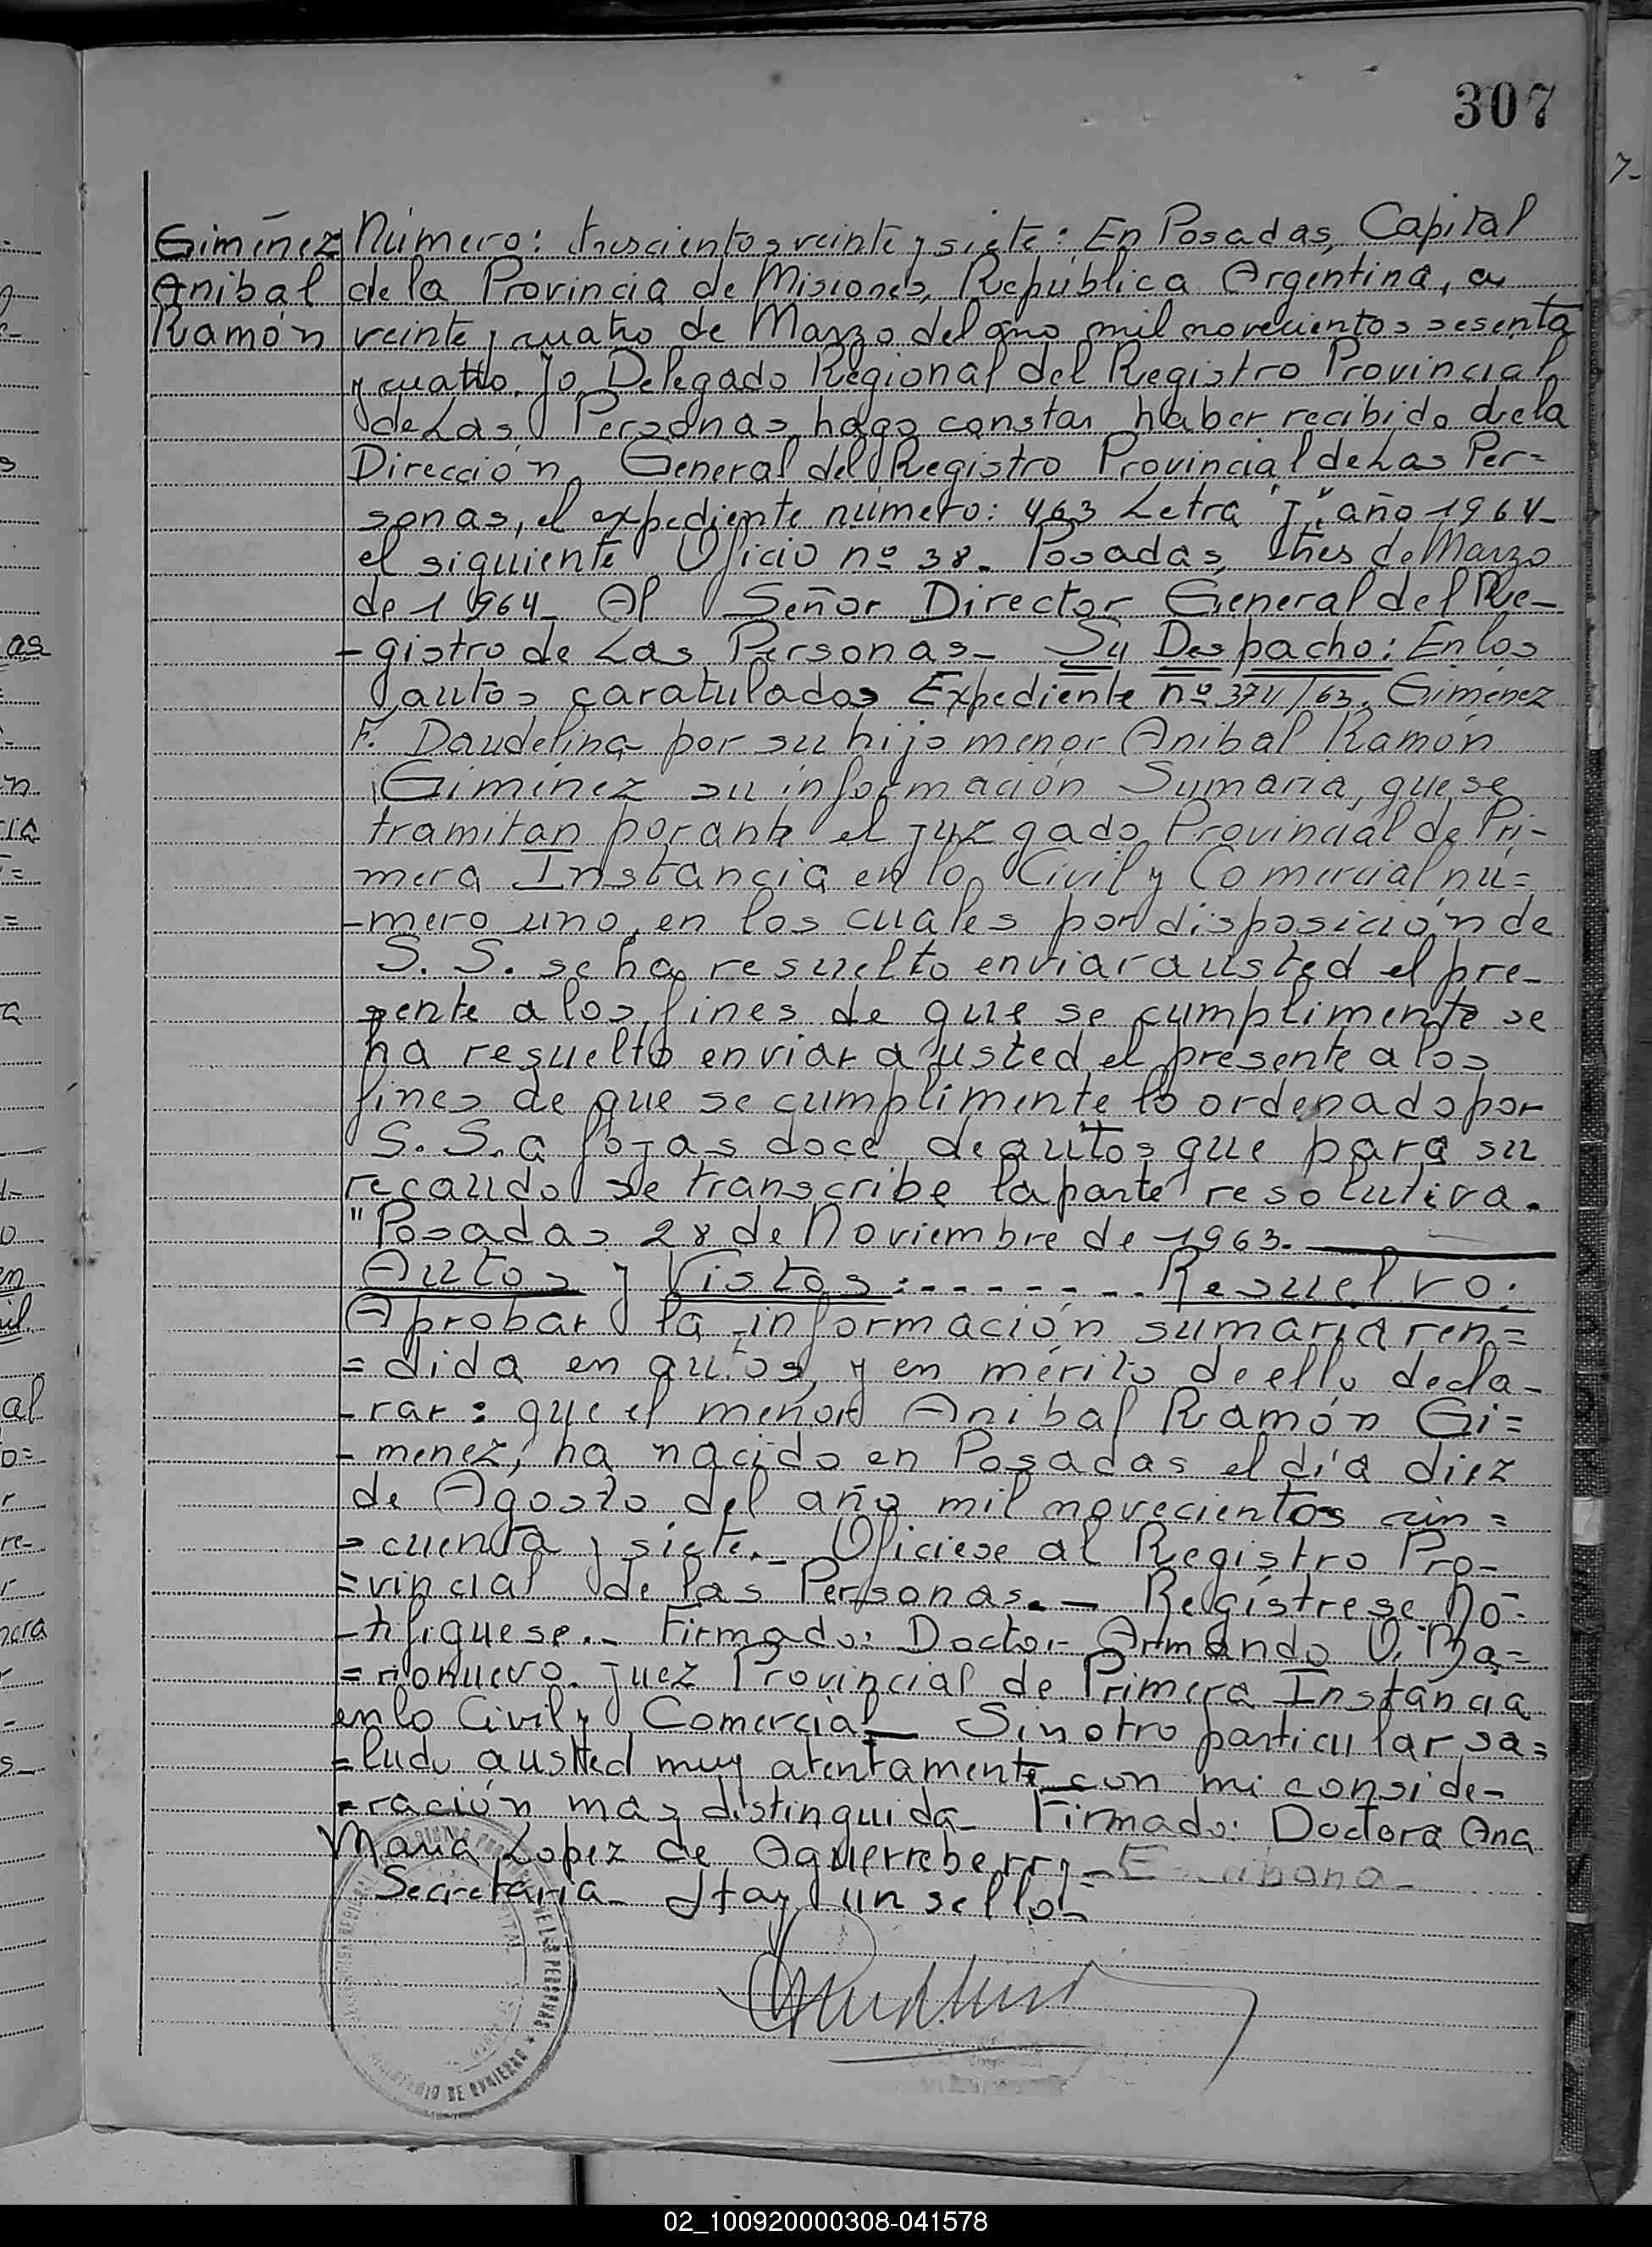 307
Giménez
Anibal
Ramón
Número: trescientos veinte y siete: En Posadas, Capital
de la Provincia de Misiones, República Argentina, a
veinte y cuatro de Marzo del año mil novecientos sesenta
y cuatro. yo Delegado Regional del Registro Provincial
de Las Personas hago constar haber recibido de la
Dirección General del Registro Provincial de Las Per=
sonas, el expediente número: 463 Letra "J" año 1964-
el siguiente Oficio nº 38. Posadas, tres de Marzo
de 1964- Al Señor Director General del Re-
-gistro de Las Personas- Su Despacho: En los
autos caratulados Expediente nº 374/63. Giménez
F. Daudelina por su hijo menor Anibal Ramón
Giminez su información Sumaria, que se
tramitan por ante el juzgado Provincial de Pri-
mera Instancia en lo Civil y Comercial nú=
-mero uno, en los cuales por disposición de
S. S. se ha resuelto enviar a usted el pre-
sente a los fines de que se cumplimente se
ha resuelto enviar a usted el presente a los
fines de que se cumplimente lo ordenado por
S. S. a fojas doce de autos que para su
recaudo se transcribe la parte resolutiva.
"Posadas 28 de Noviembre de 1963.
Autos y Vistos:------- Resuelvo:
Aprobar la información sumaria ren=
=dida en autos, y en mérito de ello decla-
-rar: que el menor Anibal Ramón Gi=
-menez, ha nacido en Posadas el día diez
de Agosto del año mil novecientos cin=
=cuenta y siete.- Oficiese al Registro Pro-
=vincial de las Personas.- Regístrese No-
-tifiquese.- Firmado: Doctor Armando V. Ma=
=rionuevo. juez Provincial de Primera Instancia
en lo Civil y Comercial- Sin otro particular sa=
=ludo a usted muy atentamente con mi conside-
-ración mas distinguida- Firmado: Doctora Ana
Maria Lopez de Aguerreberry-
Secretaria- Hay un sello-
MINISTERIO DE GOBIERNO
02_100920000308-041578